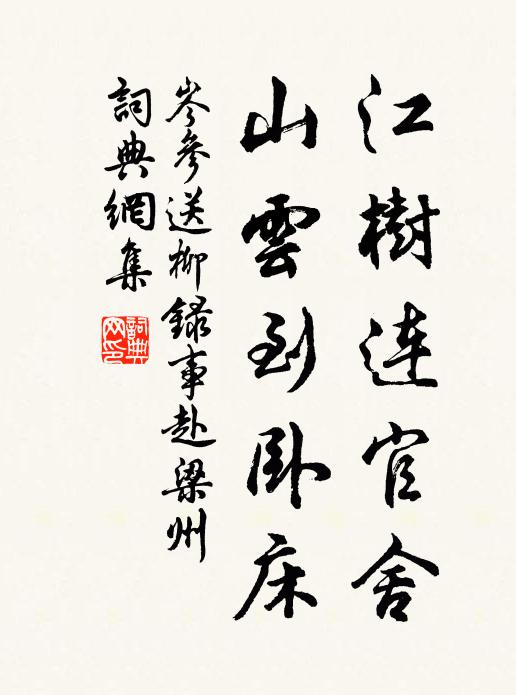 江樹連官舍
山雲到卧床
岑參送柳錄事赴梁州
詞典網集
詞典网印